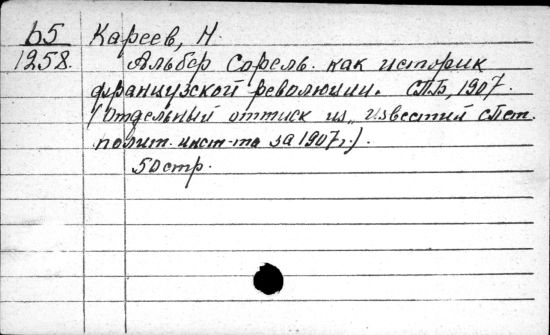 b5 Кареев, Н.
1258. Альбер Сорель. как историк
французской революции. СПБ, 1907.
(Отдельный оттиск из „известий СПет.
полит. инст-та за 1907 г.).
50 стр.